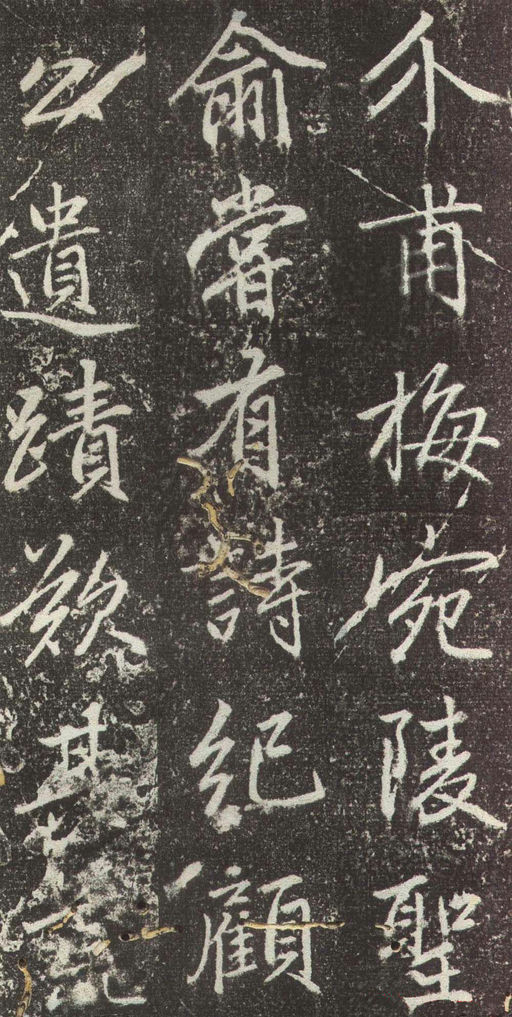 介甫梅宛陵聖
俞嘗有詩紀顧
公遺蹟欺其